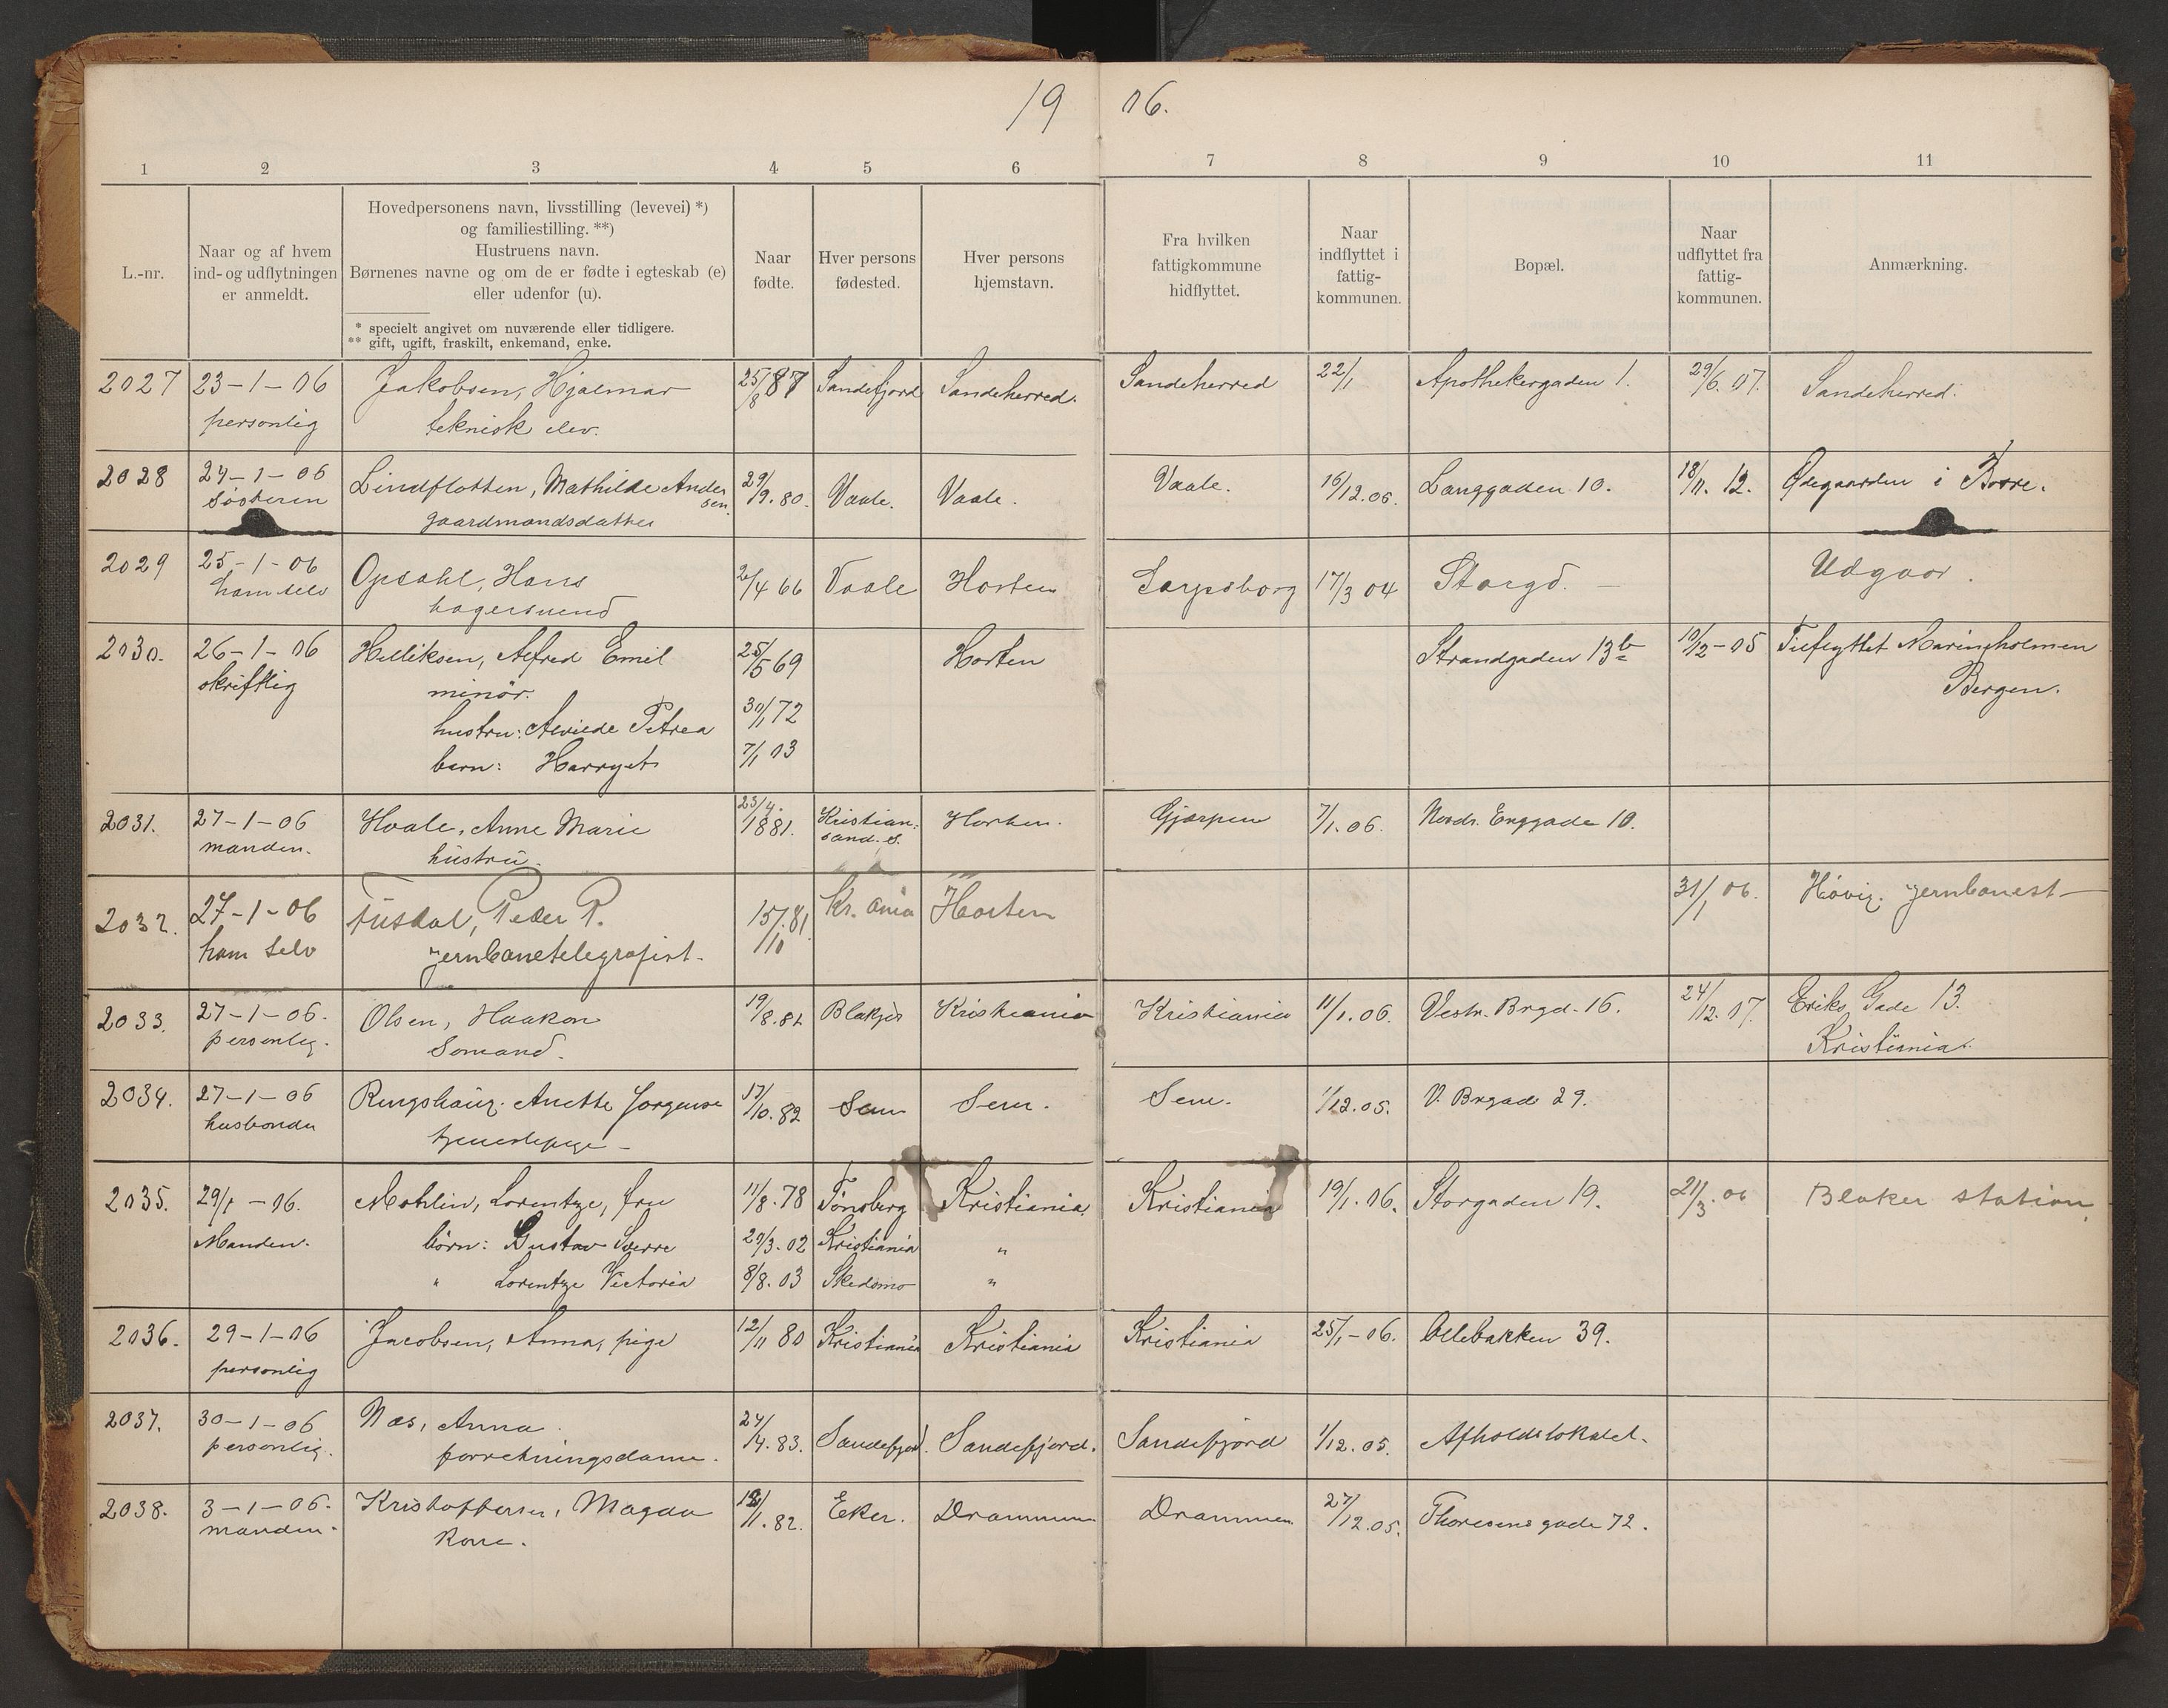 19 06.
1 2 3 4 5 6 7 8 9 10 11
L.-nr.
Naar og af hvem
ind- og udflytningen
er anmeldt.
Hovedpersonens navn, livsstilling (levevei) *)
og familiestilling. **)
Hustruens navn.
Børnenes navne og om de er fødte i egteskab (e)
eller udenfor (u).
* specielt angivet om nuværende eller tidligere.
** gift, ugift, fraskilt, enkemand, enke.
Naar
fødte.
Hver persons
fødested.
Hver persons
hjemstavn.
Fra hvilken
fattigkommune
hidflyttet.
Naar
indflyttet i
fattig-
kommunen.
Bopæl.
Naar
udflyttet fra
fattig-
kommunen.
Anmærkning.
2027 23-1-06 Jakobsen, Hjalmar 25/8 87 Sandefjord Sandeherred. Sandeherred 22/1 Apothekergaden 1. 29/6. 07. Sandeherred.
personlig teknisk elev.
2028 24-1-06 Lindflotten, Mathilde Ander 29/9. 80. Vaale. Vaale. Vaale. 16/12.05. Langgaden 10. 18/11. 12. Ødegaarden i Borre.
søsteren sen.
gaardmandsdatter
2029 25-1-06 Opsahl, Hans /4 66 Vaale Horten Sarpsborg 17/3 04 Storgd. — Udgaar.
ham selv bagersvend
2030. 26-1-06 Helliksen, Alfred Emil 25/5 69 Horten Strandgaden 13b 10/12-05 Tilflyttet Marineholmen
skriftlig minør. Bergen.
hustru: Alvilde Petrea 30/1 72
barn: Harryet 7/1 03
2031. 27-1-06 Hvale, Anne Marie 23/4. 1881. Kristian- Horten. Gjerpen 7/1. 06. Nordr. Enggade 10.
manden. hustru. sand. S.
2032. 27-1-06 Fusdal, Peder P. 15/10 81. Kr.ania Horten 31/1 06. Høvig. jernbanest-
ham selv jernbanetelegrafist-
2033. 27-1-06. Olsen, Haakon 19/8.82 Blakjer Kristiania Kristiania 11/1.06. Vestr. Brgd. 16. 24/12. 07. Eriks Gade 13.
personlig. Sømand. Kristiania.
2034. 27-1-06 Ringshaug. Anette Jørgense 17/10.82 Sem Sem. Sem. 1/12.05. V. Brgade 29.
husbonden tjenestepige —
2035. 29/1-06. Mohlin, Lorentze, fru 11/8.78 Tønsberg Kristiania Kristiania 19/1.06. Storgaden 19. 21/3.06 Blaker station.
Manden. børn: Gustav Sverre 29/3.02 Kristiania "
" Lorentze Victoria 8/8.03 Skedsmo "
2036. 29-1-06 Jacobsen, Anna, pige 12/11 80 Kristiania Kristiania Kristiania 25/1-06. Ollebakken 39.
personlig
2037. 30-1-06 Næs, Anna. 24/4.83. Sandefjord. Sandefjord. Sandefjord 1/12.05. Afholdslokalet.
personlig. forretningsdame.
2038. 3-1-06. Kristoffersen, Magda /1.82. Eker. Drammen Drammen 27/12.05. Thoresens gade 72.
manden. Kone.